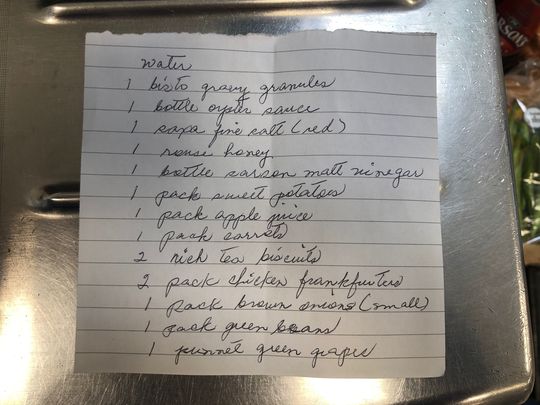 water
1 bisto gravy granules
1 bottle oyster sauce
1 saxa fine salt (red)
1 rowse honey
1 bottle sarson malt vinegar
1 pack sweet potatoes
1 pack apple juice
1 pack carrots
2 rich tea biscuits
2 pack chicken frankfurters
1 pack brown onions (small)
1 pack green beans
1 punnet green grapes